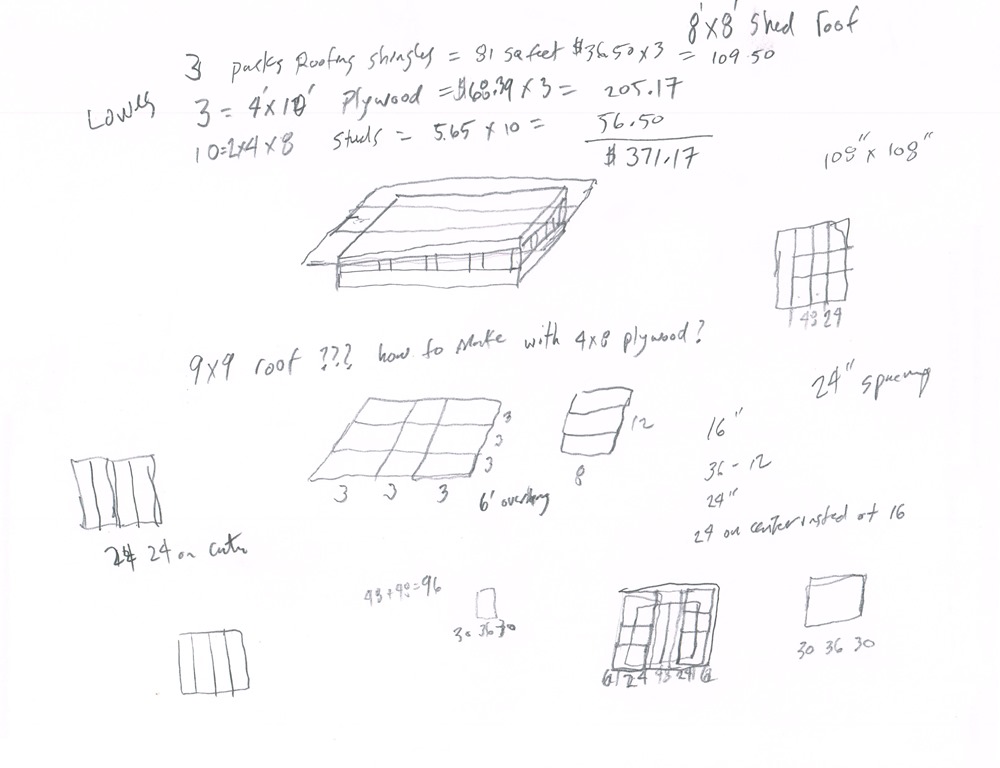 8'x8' Shed roof
3 packs Roofing shingles = 81 sq feet $36.50 x 3 = 109.50
Lowes
3 = 4'x10' Plywood = $68.39 x 3 = 205.17
10=2x4x8 Studs = 5.65 x 10 = 56.50
$ 371.17
108" x 108"
48 24
9x9 roof ??? how to make with 4x8 plywood?
24" spacing
3
3
3
12
16"
3 3 3
8
36-12
6' overhang
24"
24 on center insted of 16
24 24 on center
48+48=96
30 36 30
30 36 30
24